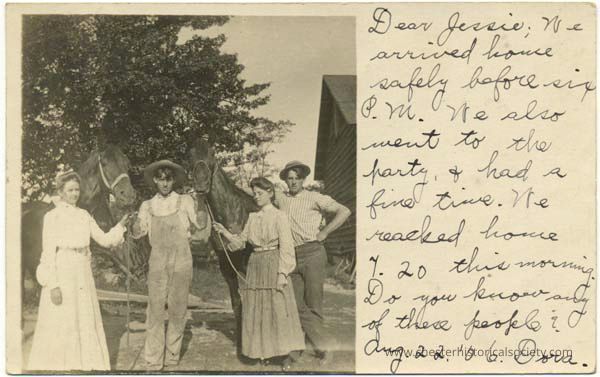 Dear Jessie; We
arrived home
safely before six
P.M. We also
went to the
party, & had a
fine time. We
reached home
7.20 this morning.
Do you know any
of these people?
Aug. 22. 06. Dora.
www.websterhistoricalsociety.com